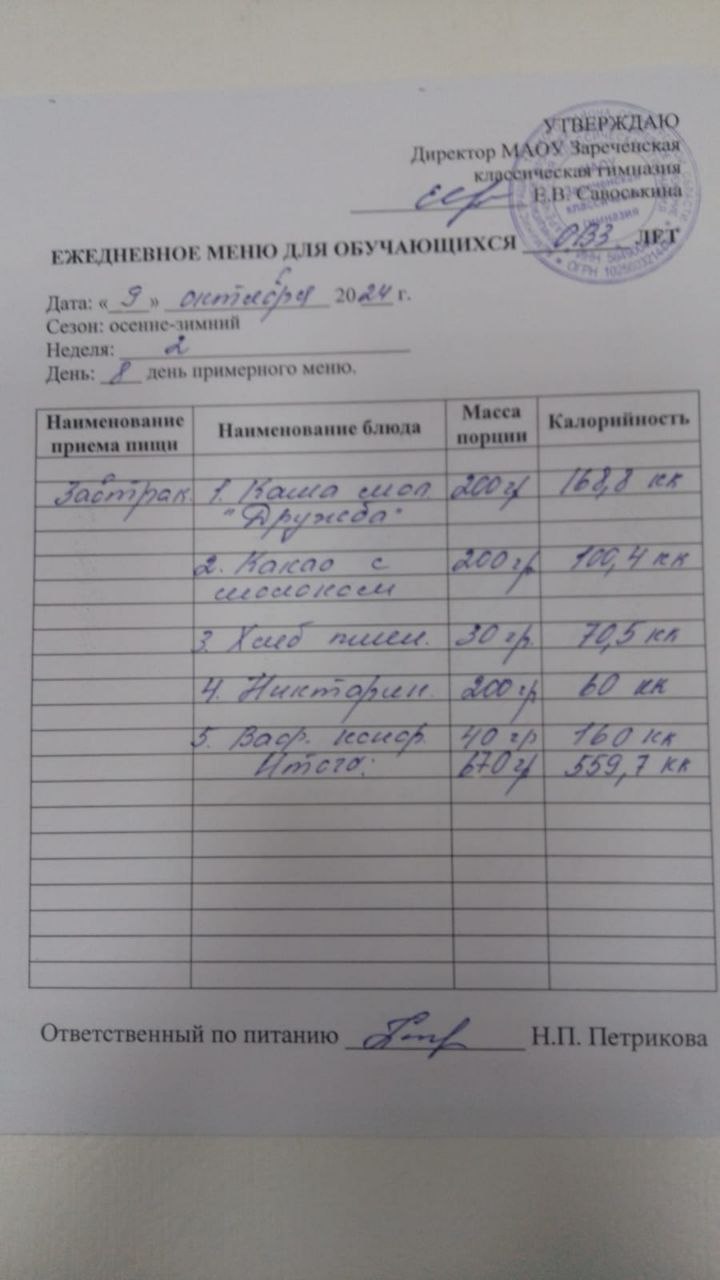 УТВЕРЖДАЮ
Директор МАОУ Зареченская
классическая гимназия
Е.В. Савоськина
ЕЖЕДНЕВНОЕ МЕНЮ ДЛЯ ОБУЧАЮЩИХСЯ ОВЗ ЛЕТ
Дата: «9» октября 2024 г.
Сезон: осенне-зимний
Неделя: 2
День: 8 день примерного меню.
Наименование приема пищи Наименование блюда Масса порции Калорийность
Завтрак 1. Каша мол 200 гр 168,8 кк
"Дружба"
2. Какао с 200 гр 100,4 кк
молоком
3. Хлеб пшен. 30 гр 70,5 кк
4. Никтарин. 200 гр 60 кк
5. Ваф. конф. 40 гр 160 кк
Итого: 670 гр 559,7 кк
Ответственный по питанию Н.П. Петрикова